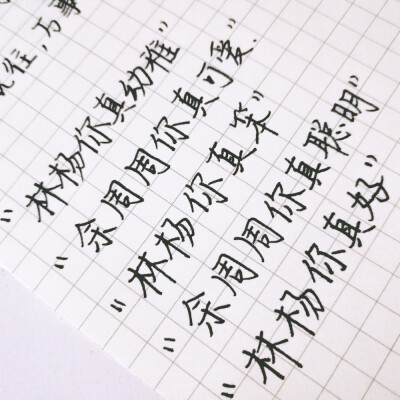 往，万事
“林杨你真幼稚”
“余周周你真可爱.
“林杨你真笨”
“余周周你真聪明”
“林杨你真好”